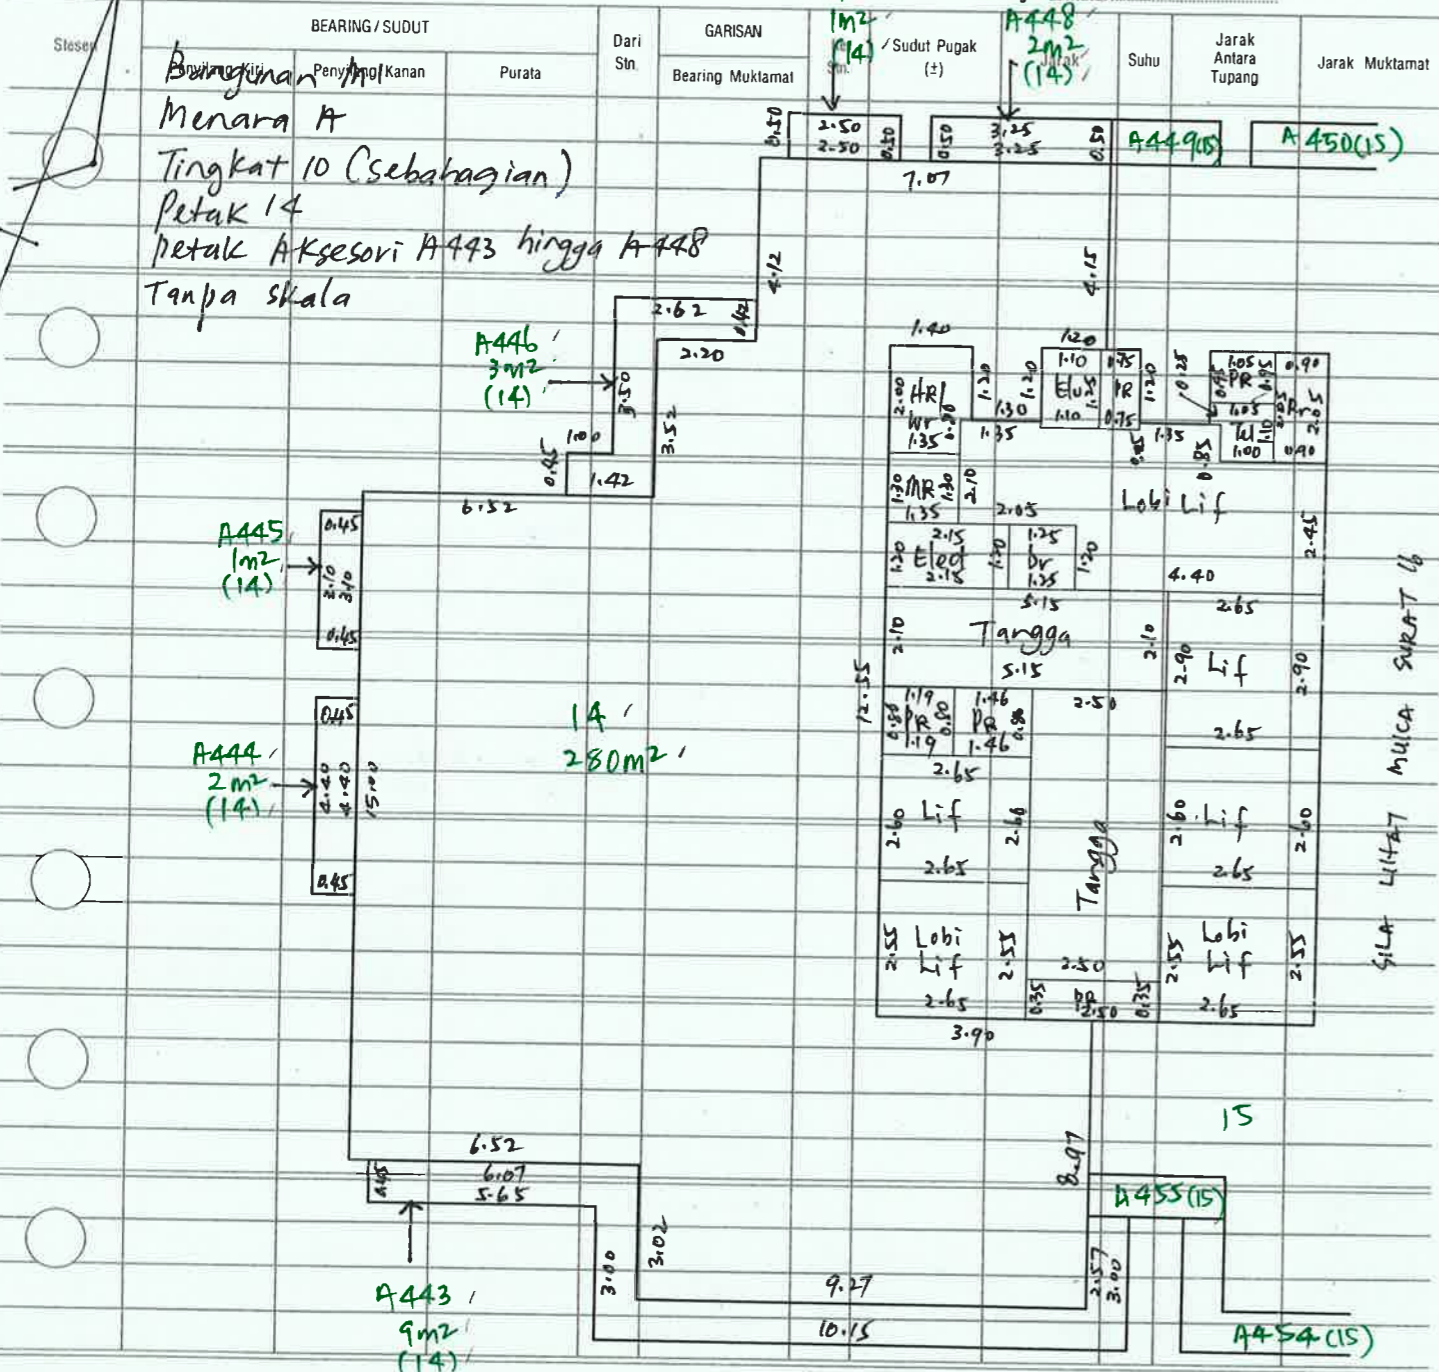 Stesen
BEARING / SUDUT
Penyilang Kiri
Penyilang Kanan
Purata
Dari Stn.
GARISAN
Bearing Muktamat
Stn.
Sudut Pugak (±)
Jarak
Suhu
Jarak Antara Tupang
Jarak Muktamat
1m²
(14)
A448
2m²
(14)
Bangunan M1
Menara A
Tingkat 10 (sebahagian)
Petak 14
Petak Aksesori A443 hingga A448
Tanpa skala
0.50
2.50
2.50
0.50
0.50
3.25
3.25
0.50
A449(15)
A450(15)
7.07
4.12
4.15
2.62
0.42
2.20
A446
3m²
(14)
3.50
3.52
1.00
0.45
1.42
6.52
A445
1m²
(14)
0.45
3.10
3.10
0.45
A444
2m²
(14)
0.45
4.40
4.40
15.00
0.45
14
280m²
1.40
2.00
HR/
Wr
1.35
0.80
1.20
1.30
1.35
1.20
1.20
1.10
Elv
1.25
1.10
0.75
PR
0.75
1.20
0.25
1.05
PR
0.95
0.95
1.05
0.90
Pr
2.05
2.05
Tel
1.10
1.00
0.90
1.35
0.85
1.30
MR
1.30
1.35
2.10
2.05
Lobi Lif
2.45
2.15
1.20
Eled
2.15
1.20
1.25
Dr
1.25
1.20
4.40
5.15
2.10
Tangga
2.10
5.15
2.65
2.90
Lif
2.90
2.65
12.55
1.19
0.80
PR
0.80
1.19
1.46
PR
0.80
1.46
2.50
2.65
2.60
Lif
2.60
2.65
Tangga
2.60
Lif
2.60
2.65
2.55
Lobi
Lif
2.55
2.65
2.50
0.35
PR
2.50
0.35
2.55
Lobi
Lif
2.55
2.65
3.90
SILA LIHAT MUKA SURAT 16
15
8.97
A455(15)
6.52
0.45
6.07
5.65
3.00
3.02
9.27
10.15
2.57
3.00
A443
9m²
(14)
A454(15)